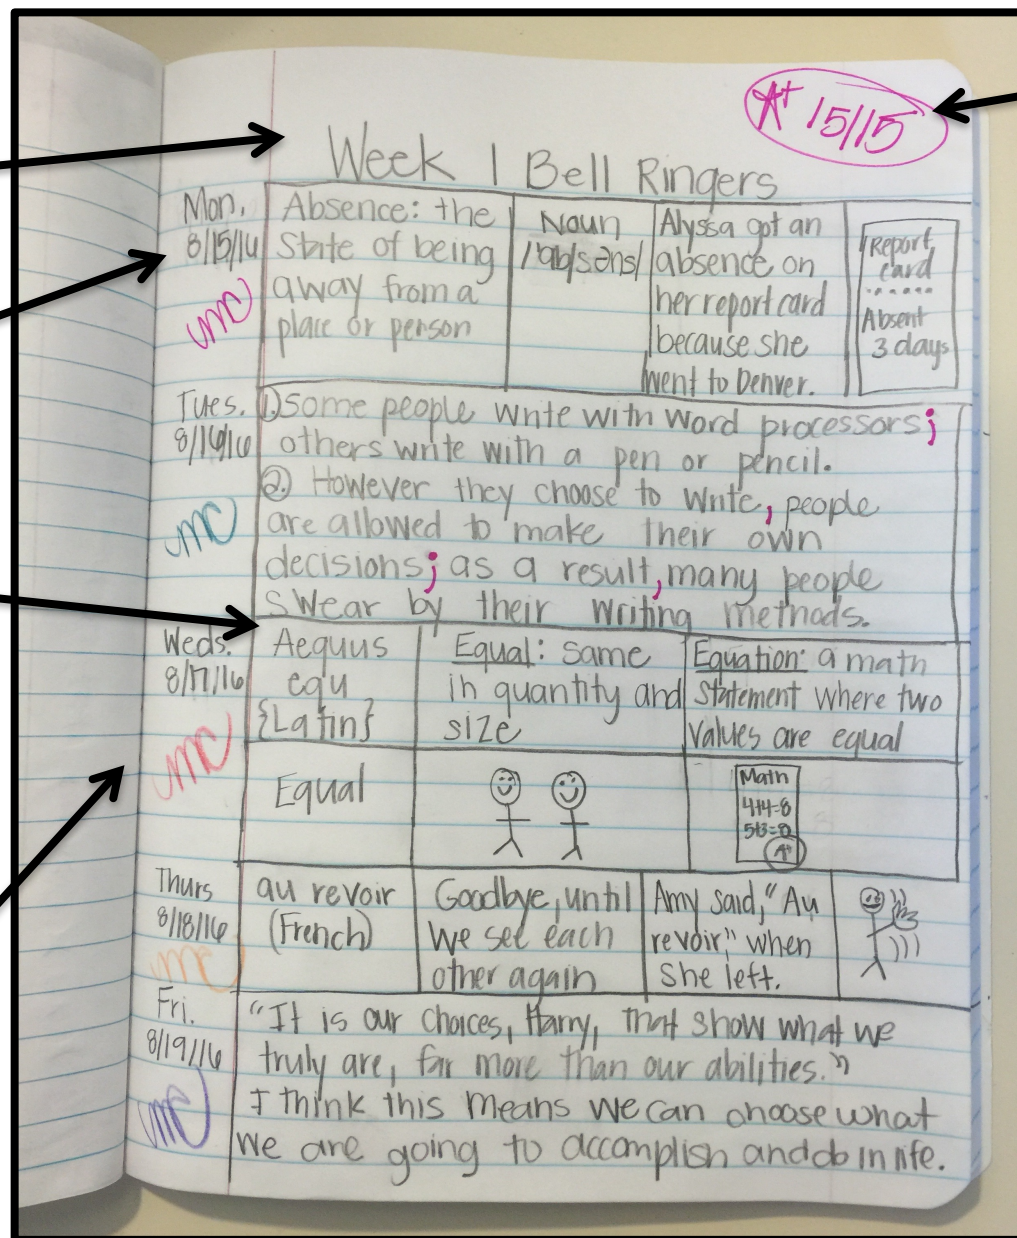 A+ 15/15
Week 1 Bell Ringers
Mon.
8/15/16
mc
Absence: the
state of being
away from a
place or person
Noun
/'ab/səns/
Alyssa got an
absence on
her report card
because she
went to Denver.
Report
card
Absent
3 days
Tues.
8/16/16
mc
1.) Some people write with word processors;
others write with a pen or pencil.
2.) However they choose to write, people
are allowed to make their own
decisions; as a result, many people
swear by their writing methods.
Weds.
8/17/16
mc
Aequus
equ
{Latin}
Equal: same
in quantity and
size
Equation: a math
statement where two
values are equal
Equal
Math
4+4=8
5+3=8
A+
Thurs
8/18/16
mc
au revoir
(French)
Goodbye, until
we see each
other again
Amy said, "Au
revoir" when
she left.
Fri.
8/19/16
mc
"It is our choices, Harry, that show what we
truly are, far more than our abilities."
I think this means we can choose what
we are going to accomplish and do in life.